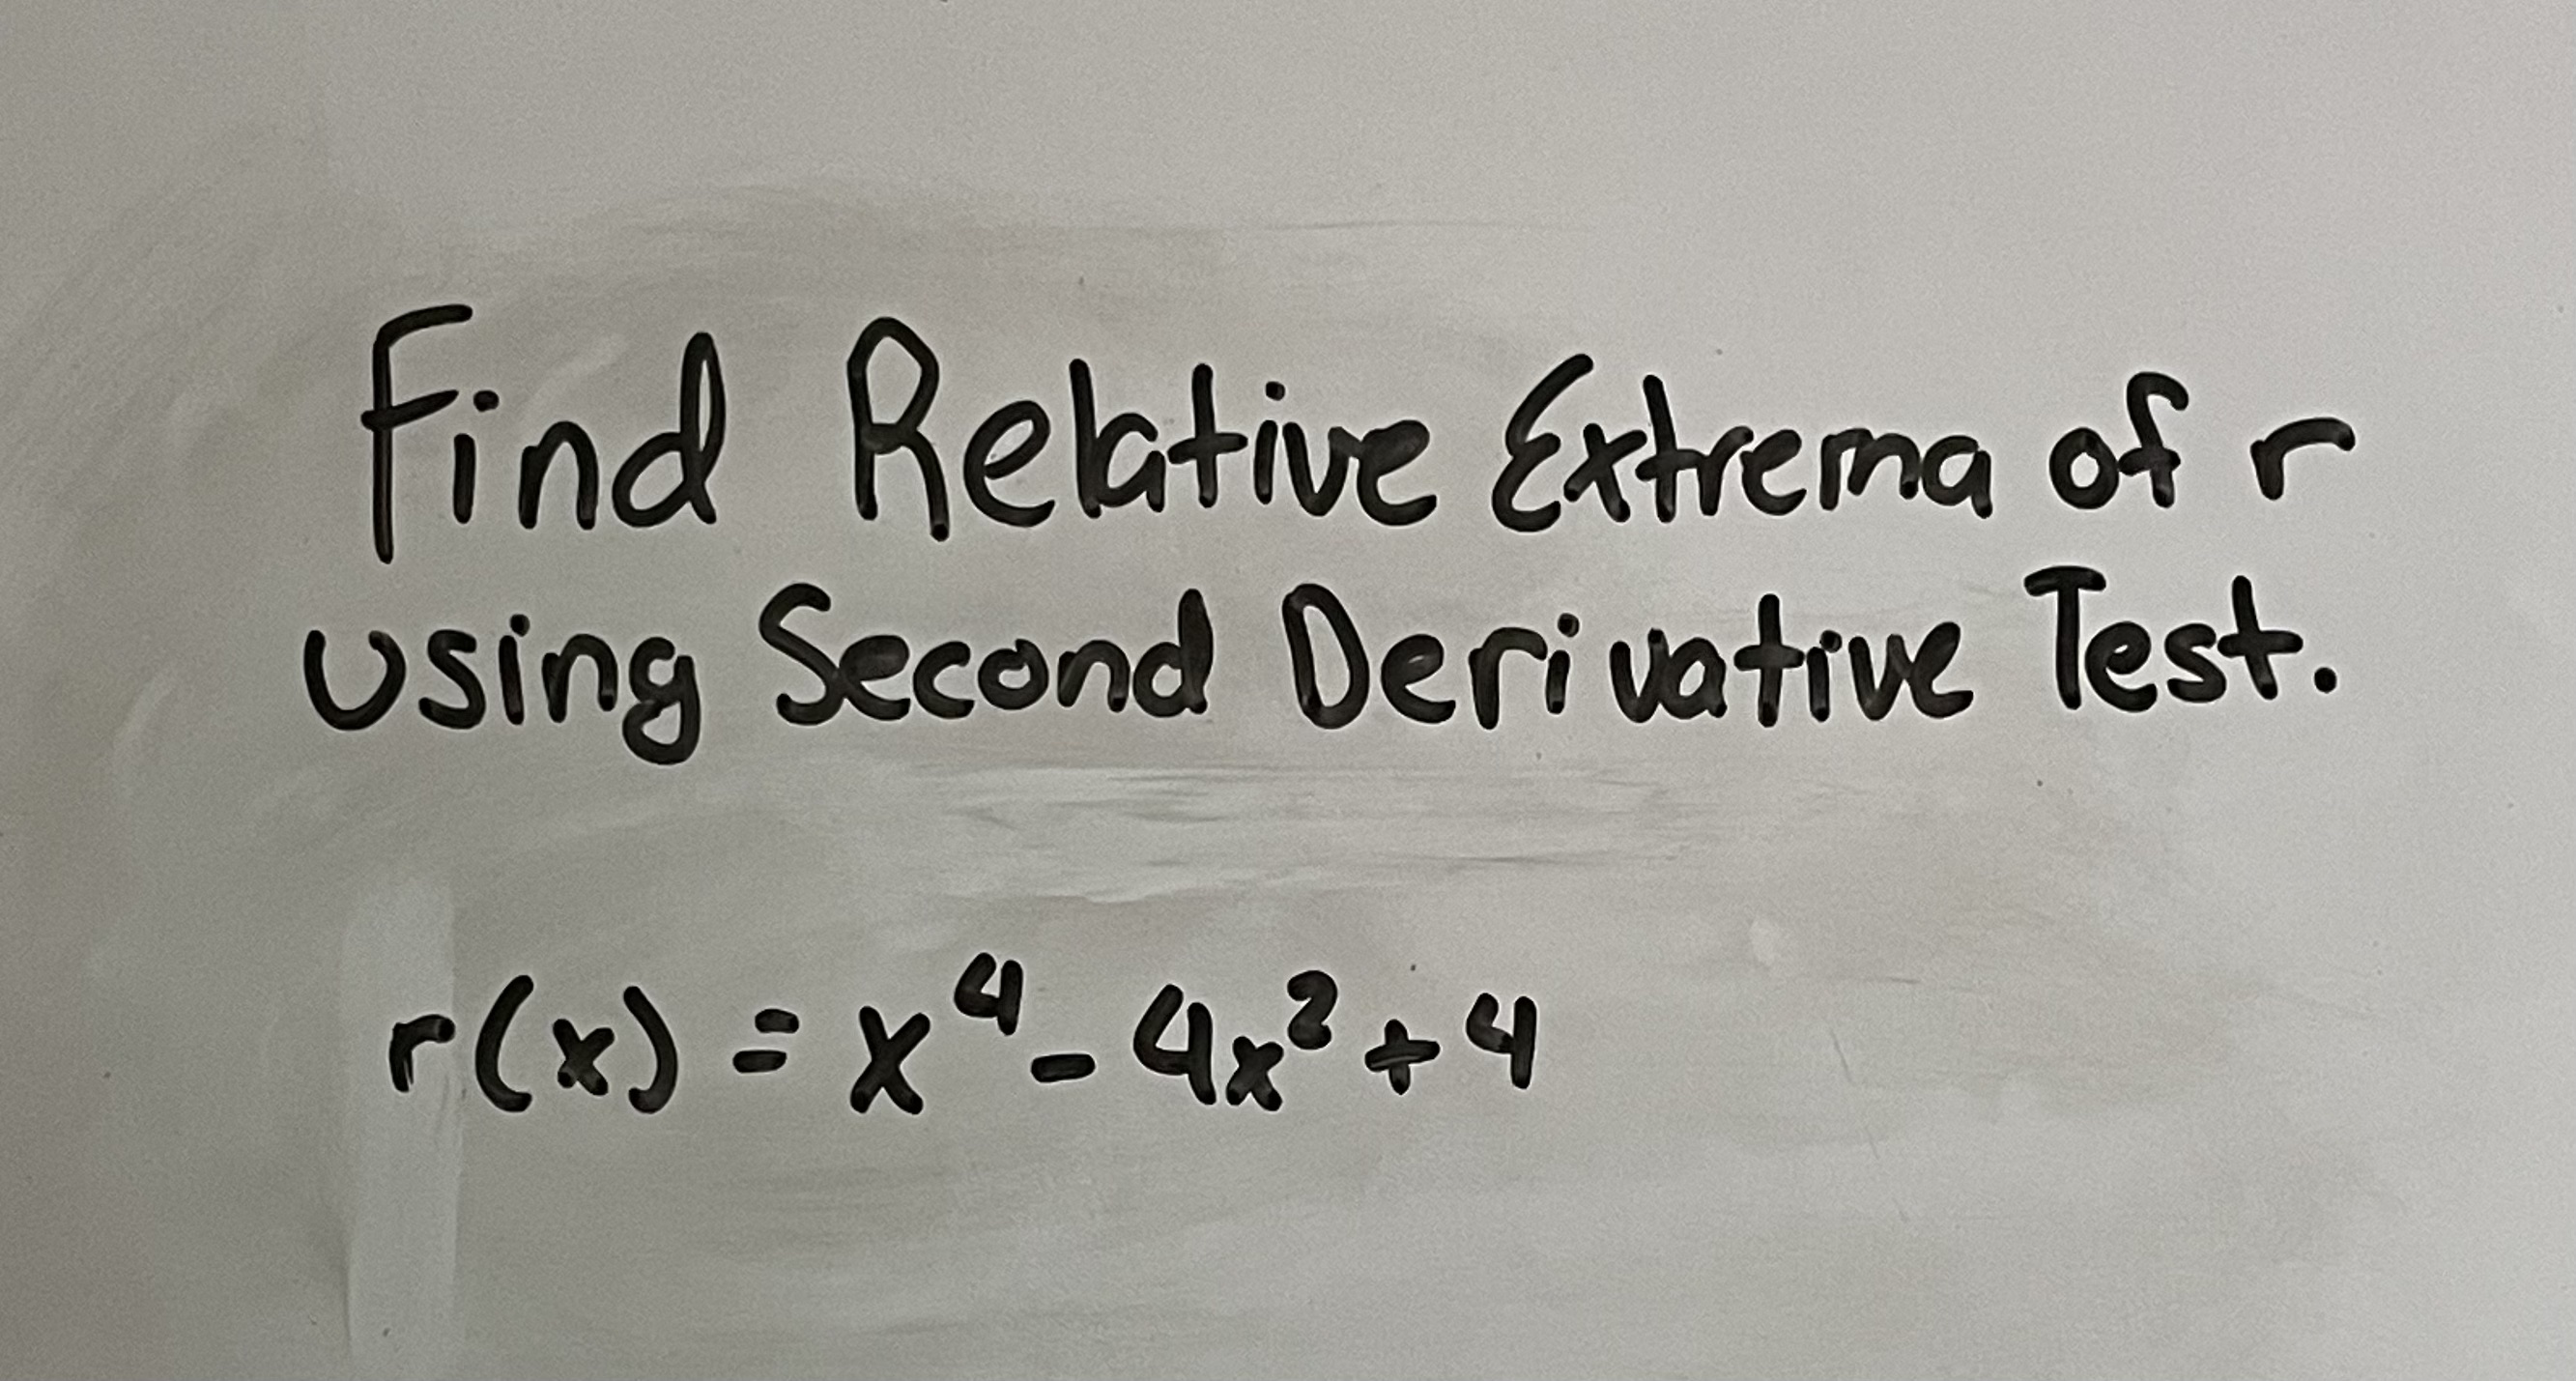 Find Relative Extrema of r
using Second Derivative Test.
r(x) = x⁴ - 4x² + 4